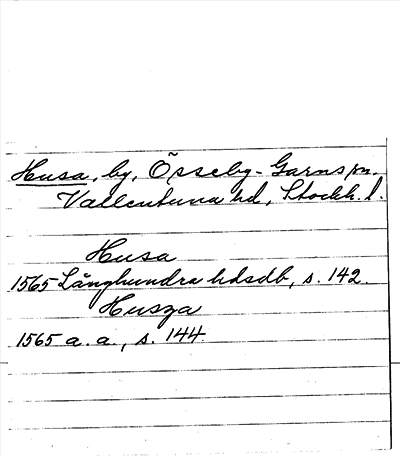 Husa, by, Össeby-Garns sn.
Vallentuna hd, Stockh. l.
Husa
1565 Långhundra hdsdb, s. 142.
Husza
1565 a. a., s. 144.